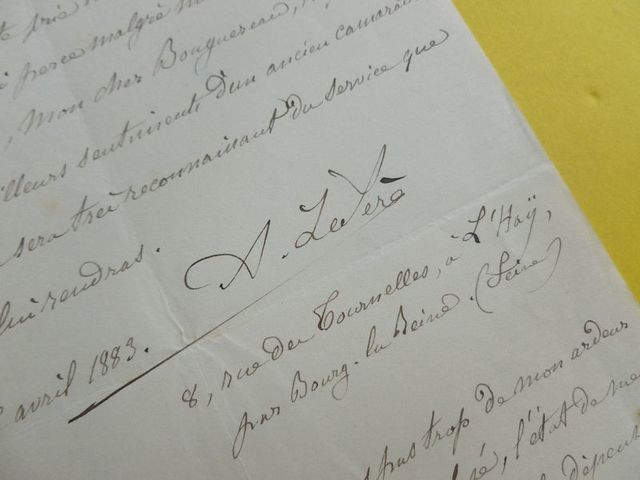 te prie
force malgré
, mon cher Bouguereau,
illeurs sentiments d'un ancien camarade
sera très reconnaissant du service que
lui rendras.
A. LeSère
avril 1883.
8, rue des Tournelles, à L'Haÿ,
par Bourg-la-Reine. (Seine)
pas trop de mon ardeur
l'état de me